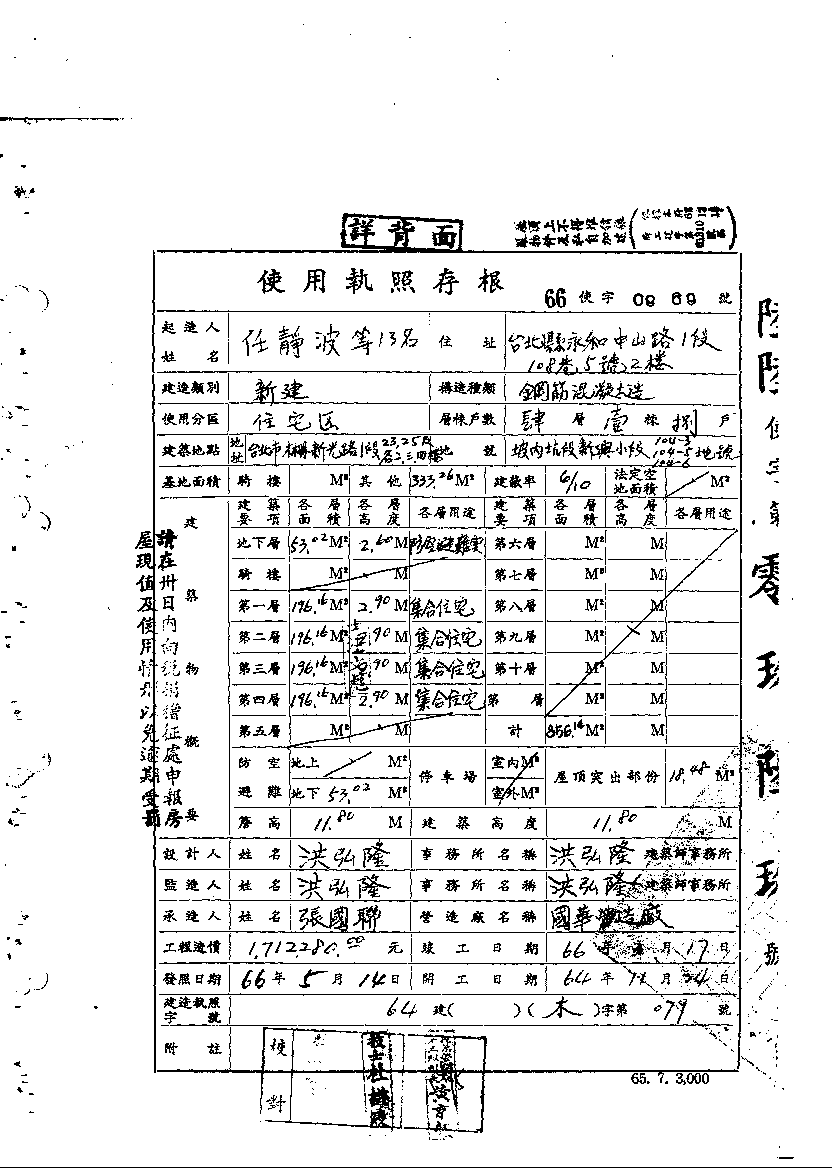 詳背面
使用執照存根
66 使字 0969 號
起造人姓名 任靜波等13名 住址 台北縣永和中山路1段108巷5號2樓
建造類別 新建 構造種類 鋼筋混凝土造
使用分區 住宅區 層棟戶數 肆層壹棟捌戶
建築地點 地址 台北市木柵新光路1段23,25及各2,3,四樓 地號 坡內坑段新興小段104-3 104-5 104-6地號
基地面積 騎樓 M² 其他 333.26 M² 建蔽率 6/10 法定空地面積 M²
建築物概要
建築要項 各層面積 各層高度 各層用途 建築要項 各層面積 各層高度 各層用途
地下層 53.02 M² 2.60 M 防空避難室 第六層 M² M
騎樓 M² M 第七層 M² M
第一層 196.16 M² 2.90 M 集合住宅 第八層 M² M
第二層 196.16 M² .90 M 集合住宅 第九層 M² M
第三層 196.16 M² .90 M 集合住宅 第十層 M² M
第四層 196.16 M² 2.90 M 集合住宅 第 層 M² M
第五層 M² M 計 856.16 M² M
防空避難 地上 M² 停車場 室內M² 屋頂突出部份 18.48 M²
地下 53.02 M² 室外M²
簷高 11.80 M 建築高度 11.80 M
設計人 姓名 洪弘隆 事務所名稱 洪弘隆建築師事務所
監造人 姓名 洪弘隆 事務所名稱 洪弘隆建築師事務所
承造人 姓名 張國聯 營造廠名稱 國華營造廠
工程造價 1,712,280.00 元 竣工日期 66年 月17日
發照日期 66年5月14日 開工日期 64年 月 日
建造執照字號 64 建( )(木)字第 079 號
附註
校對
65. 7. 3,000
請在卅日內向稅捐稽征處申報房
屋現值及使用情形以免逾期受罰
陸陸使字第零玖陸玖號